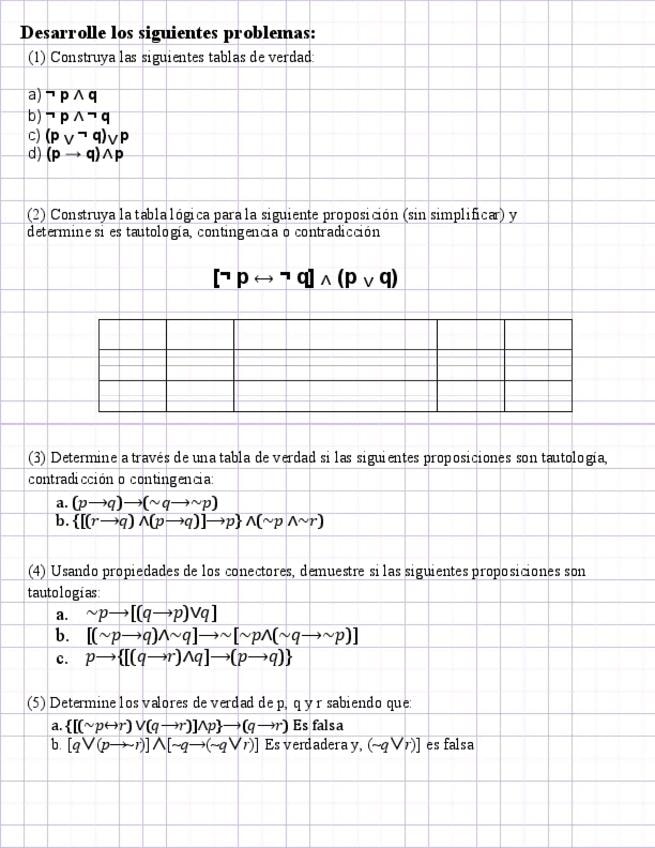 Desarrolle los siguientes problemas:
(1) Construya las siguientes tablas de verdad:
a) ¬ p ∧ q
b) ¬ p ∧ ¬ q
c) (p ∨ ¬ q)∨p
d) (p → q)∧p
(2) Construya la tabla lógica para la siguiente proposición (sin simplificar) y
determine si es tautología, contingencia o contradicción
[¬ p ↔ ¬ q] ∧ (p ∨ q)
(3) Determine a través de una tabla de verdad si las siguientes proposiciones son tautología,
contradicción o contingencia:
a. (p→q)→(~q→~p)
b. {[(r→q) ∧(p→q)]→p} ∧(~p ∧~r)
(4) Usando propiedades de los conectores, demuestre si las siguientes proposiciones son
tautologías:
a. ~p→[(q→p)∨q]
b. [(~p→q)∧~q]→~[~p∧(~q→~p)]
c. p→{[(q→r)∧q]→(p→q)}
(5) Determine los valores de verdad de p, q y r sabiendo que:
a. {[(~p↔r) ∨(q→r)]∧p}→(q→r) Es falsa
b. [q∨(p→~r)]∧[~q→(~q∨r)] Es verdadera y, (~q∨r)] es falsa